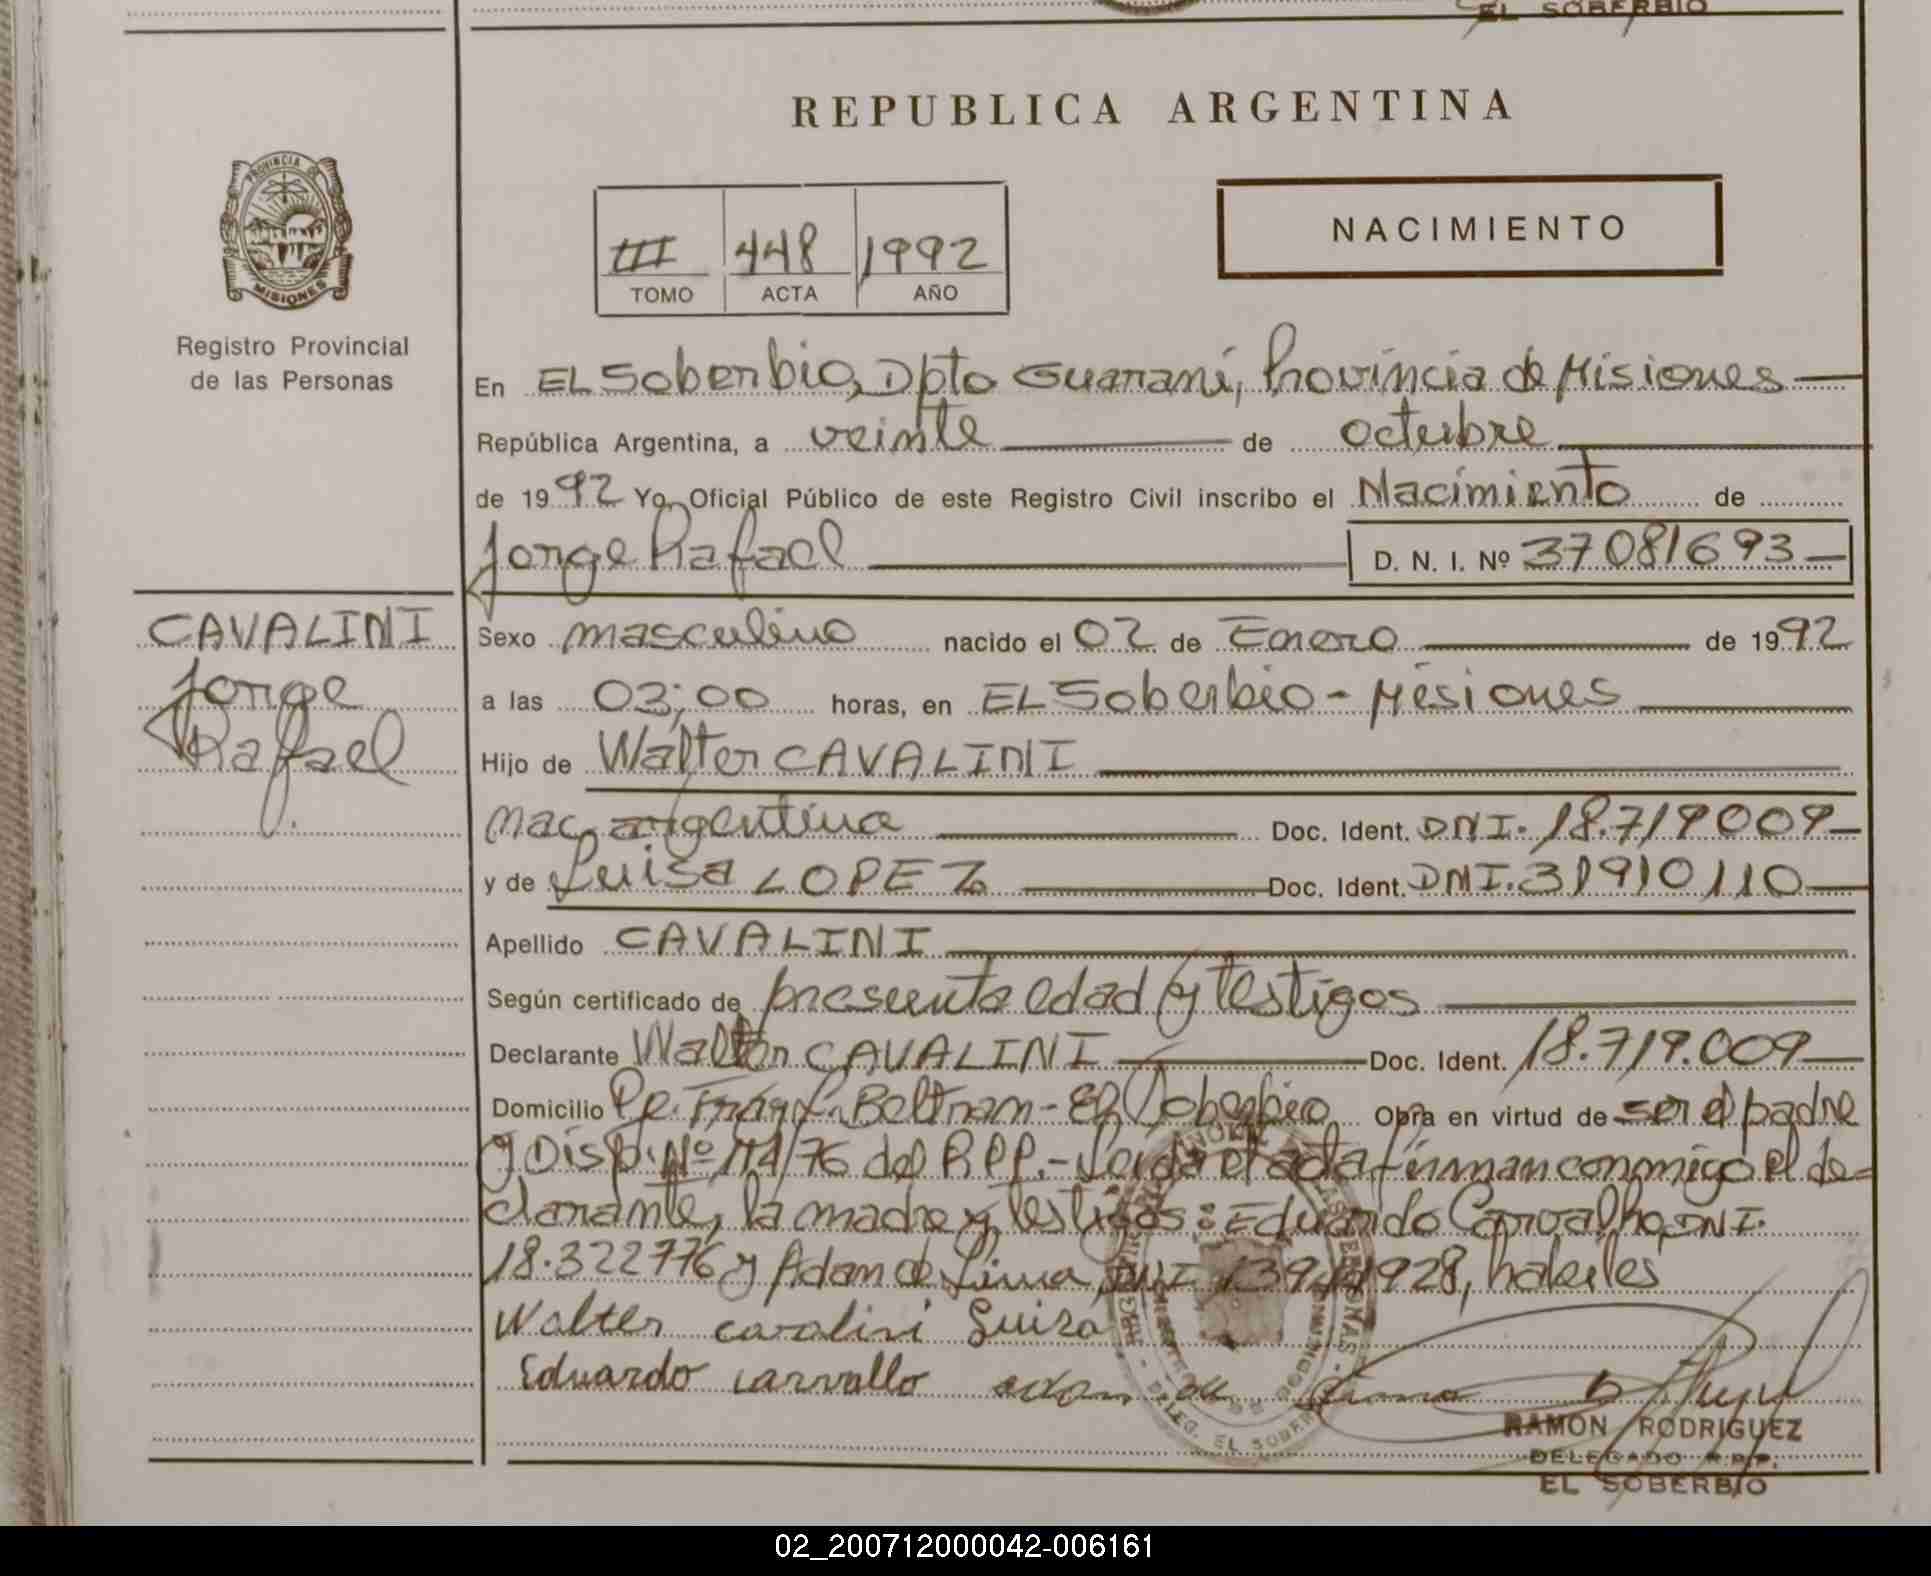 EL SOBERBIO
REPUBLICA ARGENTINA
PROVINCIA DE
MISIONES
Registro Provincial
de las Personas
III 448 1992
TOMO ACTA AÑO
NACIMIENTO
En EL Soberbio, Dpto Guaraní, Provincia de Misiones
República Argentina, a veinte de octubre
de 1992 Yo, Oficial Público de este Registro Civil inscribo el Nacimiento de
Jorge Rafael D. N. I. Nº 37081693
CAVALINI
Jorge
Rafael
Sexo masculino nacido el 02 de Enero de 1992
a las 03;00 horas, en EL Soberbio - Misiones
Hijo de Walter CAVALINI
nac. argentina Doc. Ident. DNI. 18.719009
y de Luisa LOPEZ Doc. Ident. DNI. 31910110
Apellido CAVALINI
Según certificado de presunta edad y testigos
Declarante Walter CAVALINI Doc. Ident. 18.719.009
Domicilio Beltran - El Soberbio Obra en virtud de ser el padre
y Disp. Nº /76 del R.P.P. - Leída el acta firman conmigo el de=
clarante, la madre y testigos: Eduardo Carvalho, DNI.
18.322776 y Adan de Lima DNI 928, habiles
Walter cavalini Luiza
Eduardo carvallo adan de Lima
DELEG. EL SOBERBIO
RAMON RODRIGUEZ
DELEGADO R.P.P.
EL SOBERBIO
02_200712000042-006161